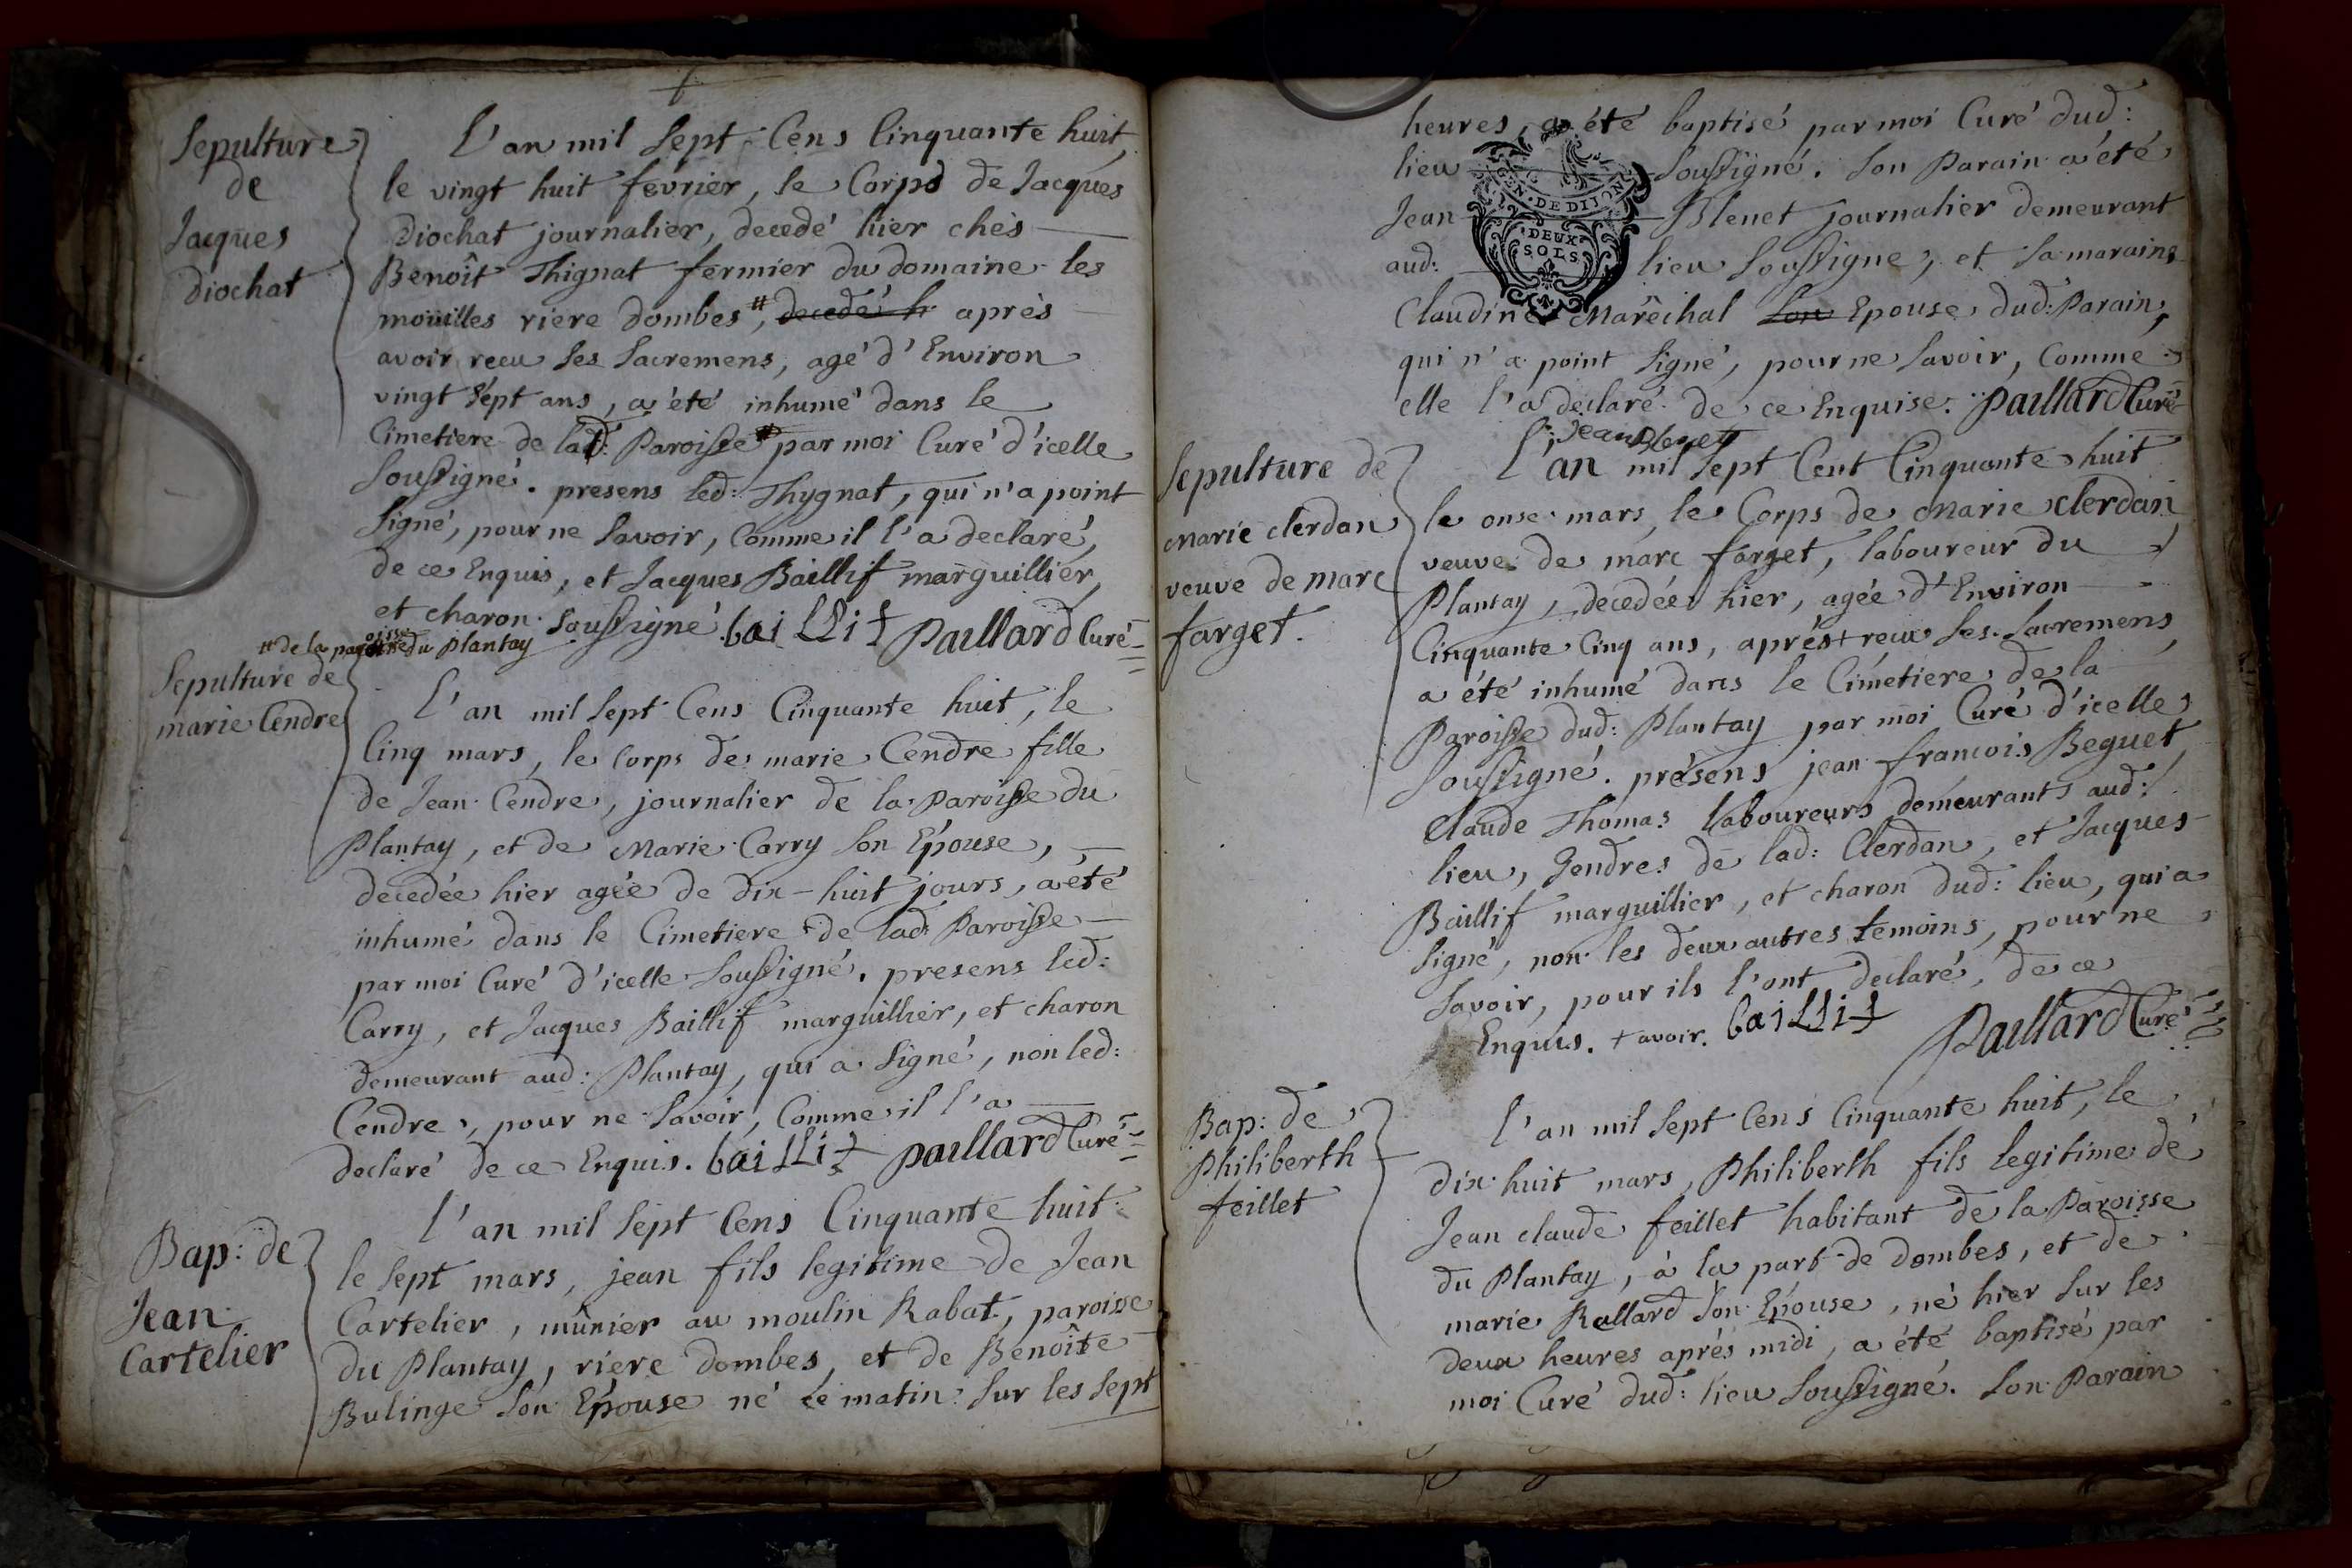 Sepulture
de
Jacques
diochat
L'an mil sept Cens Cinquante huit,
le vingt huit fevrier, le Corps de Jacques
Diochat journalier, decedé hier chès
Benoît Thignat fermier du domaine les
moüilles riere dombes #, decedé h après
avoir recu ses sacremens, agé d'Environ
vingt sépt ans, a été inhumé dans le
Cimetiere de lad: Paroisse # par moi Curé d'icelle
soussigné. presens led: Thygnat, qui n'a point
signé, pour ne savoir, comme il l'a declaré,
de ce Enquis, et Jacques Baillif marguillier,
et charon soussigné. baillif Paillard Curé
# de la paroisse du Plantay
Sepulture de
marie Cendre
L'an mil sept Cens Cinquante huit, le
Cinq mars, le corps de marie Cendre fille
de Jean Cendre, journalier de la Paroisse du
Plantay, et de Marie Carry son Epouse,
decedée hier agée de dix-huit jours, a été
inhumé dans le Cimetiere de lad: Paroisse
par moi Curé d'icelle soussigné. presens led:
Carry, et Jacques Baillif marguillier, et charon
demeurant aud: Plantay, qui a signé, non led:
Cendre, pour ne savoir, Comme il l'a
declaré de ce Enquis. baillif paillard Curé
Bap: de
Jean
Cartelier
L'an mil sépt Cens Cinquante huit
le sept mars, jean fils legitime de Jean
Cartelier, mûnier au moulin Rabat, paroisse
du Plantay, riere dombes, et de Benoîte
Bulinge son Epouse né ce matin sur les sept
heures, a été baptisé par moi Curé dud:
lieu soussigné. Son Parain a été
Jean Blenet journalier demeurant
aud: lieu soussigné, et sa maraine
Claudine Marêchal son Epouse dud: Parain,
qui n'a point signé, pour ne savoir, comme
elle l'a declaré de ce Enquise. Paillard Curé
GEN. DE DIJON
DEUX
SOLS
Sepulture de
Marie clerdan
veuve de marc
farget.
L'an mil sept Cent Cinquante huit
le onse mars, le Corps de Marie clerdan
veuve de marc farget, laboureur du
Plantay, decedée hier, agée d'Environ
Cinquante Cinq ans, aprés + recu ses sacremens,
a été inhumé dans le Cimetiere de la
Paroisse dud: Plantay par moi Curé d'icelle
soussigné. présens jean francois Beguet,
Claude Thomas laboureurs demeurants aud:
lieu, Gendres de lad: Clerdan, et Jacques
Baillif marguillier, et charon dud: lieu, qui a
signé, non les deux autres témoins, pour ne
savoir, pour ils l'ont declaré, de ce
Enquis. + avoir. baillif Paillard Curé
Bap: de
Philiberth
feillet
L'an mil sept Cens Cinquante huit, le
dix huit mars, Philiberth fils legitime de
Jean claude feillet habitant de la Paroisse
du Plantay, à la part de dombes, et de
marie Rallard son Epouse, né hier sur les
deux heures aprés midi, a été baptisé par
moi Curé dud: lieu soussigné. Son Parain